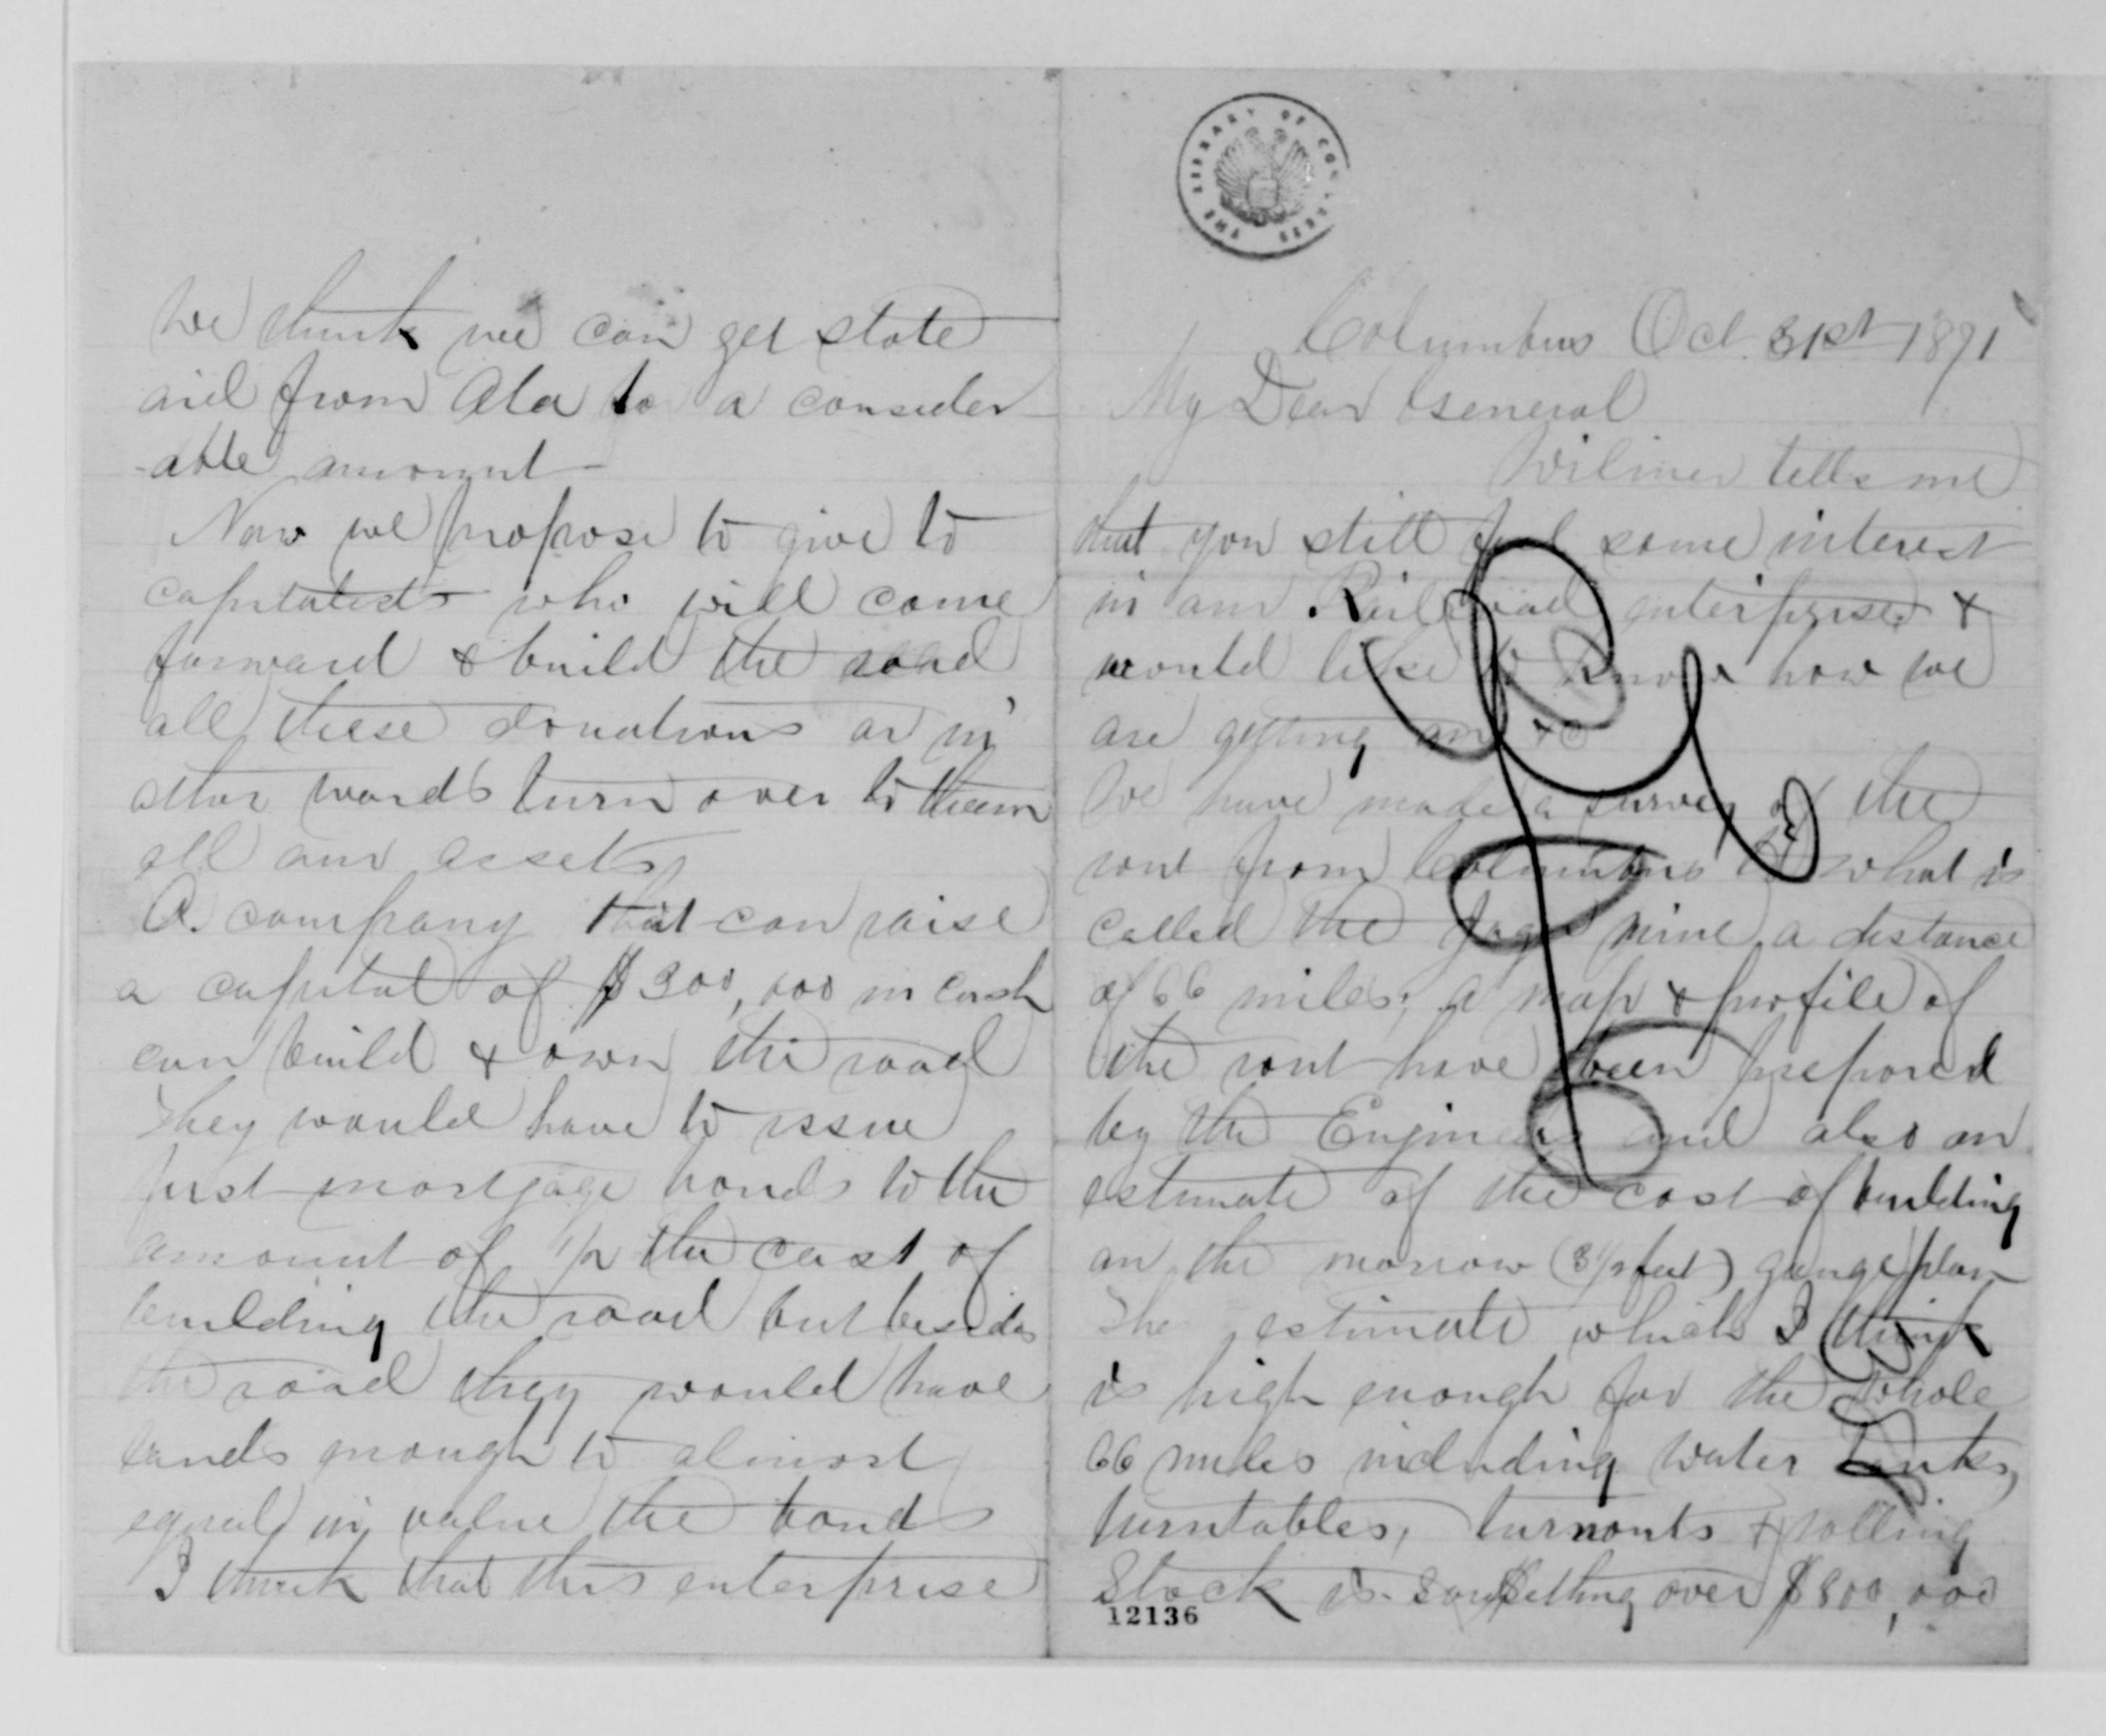 We think we can get state
aid from Ala to a consider
-able amount
Now we propose to give to
capitalists who will come
forward & build the road
all these donations or in
other words turn over to them
all our assets
A company that can raise
a capital of $300,000 in cash
can build & own the road
They would have to issue
first mortgage bonds to the
amount of 1/2 the cost of
building the road but besides
the road they would have
lands enough to almost
equal in value the bonds
I think that this enterprise
THE LIBRARY OF CONGRESS
Columbus Oct. 31st 1871
My Dear General
Wilmer tells me
that you still feel some interest
in our Railroad enterprise &
would like to know how we
are getting on &c
We have made a survey of the
rout from Columbus to what is
called the mine a distance
of 66 miles, a map & profile of
the rout have been prepared
by the Engineer and also an
estimate of the cost of building
on the narrow (3 1/2 feet) gauge plan
The estimate which I think
is high enough for the whole
66 miles including water tanks,
turntables, turnouts & rolling
Stock is something over $800,000
12136